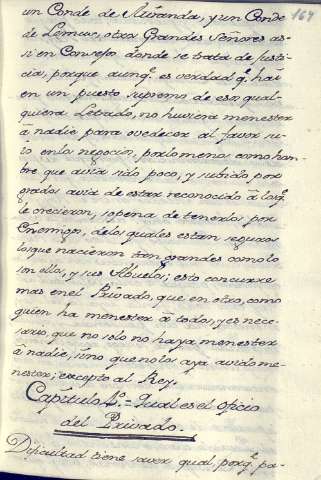 un Conde de Miranda, y un Conde 164
de Lemus, otros Grandes Señores as-
si en Consejo donde se trata de Justi-
cia, porque aunq.e es verdad q.e hai
en un puesto supremo de esos qual-
quiera Letrado, no huviera menester
à nadie para ovedecer al favor su-
io en los negocios, por lo menos como hom-
bre que avia sido poco, y subido por
grados avia de estar reconocido à los q.e
le crecieron, sopena de tenerlos por
Enemigos, de los quales estan seguros
los que nacieron tan grandes como lo
son ellos, y sus Abuelos; esto concurre
mas en el Privado, que en otro, como
quien ha menester à todos, y es nece-
sario, que no solo no haya menester
à nadie, sino que no los aya avido me-
nester; excepto al Rey.
Capitulo 1.o = Qual es el oficio
del Privado.
Dificultad tiene saver qual, porq.e pa-